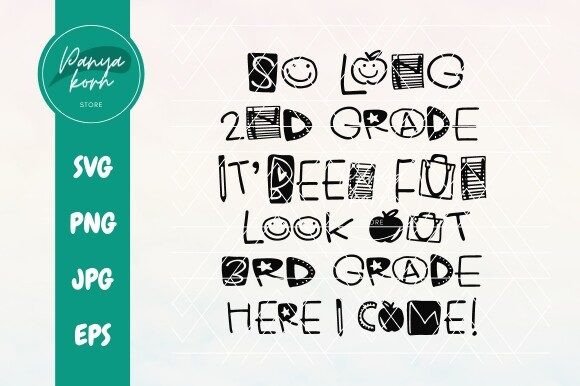 Panya
korn
STORE
SVG
PNG
JPG
EPS
SO LONG
2ND GRADE
IT'BEEN FUN
LOOK OUT
3RD GRADE
HERE I COME!